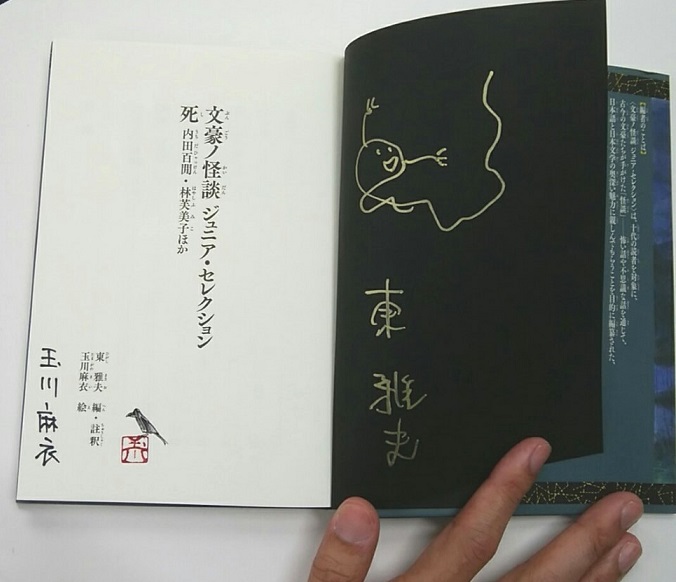 【編者のことば】
〈文豪ノ怪談 ジュニア・セレクション〉は、十代の読者を対象に、
古今の文豪たちが手がけた「怪談」――怖い話や不思議な話を通じて、
日本語と日本文学の奥深い魅力に親しんでもらうことを目的に編纂された、
東 雅夫
文豪ノ怪談 ジュニア・セレクション
死
内田百閒・林芙美子ほか
東 雅夫 編・註釈
玉川麻衣 絵
玉川麻衣